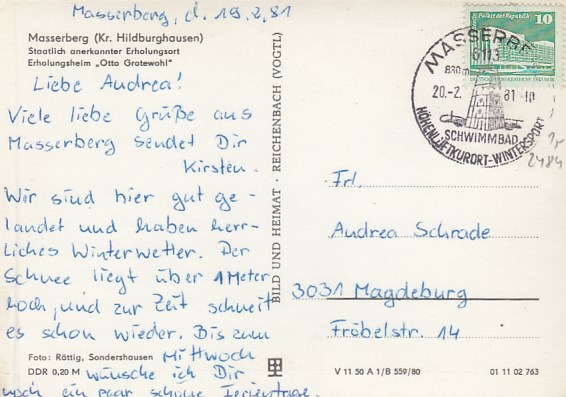 Masserberg, d. 19.2.81
Masserberg (Kr. Hildburghausen)
Staatlich anerkannter Erholungsort
Erholungsheim „Otto Grotewohl"
Liebe Andrea!
Viele liebe Grüße aus
Masserberg sendet Dir
Kirsten.
Wir sind hier gut ge-
landet und haben herr-
liches Winterwetter. Der
Schnee liegt über 1 Meter
hoch, und zur Zeit schneit
es schon wieder. Bis zum
Mittwoch
wünsche ich Dir
noch ein paar schöne Ferientage.
Foto: Röttig, Sondershausen
DDR 0,20 M
BILD UND HEIMAT · REICHENBACH (VOGTL)
Palast der Republik 10
MASSERBE
6113
830m
20.-2. 81-10
SCHWIMMBAD
HÖHENLUFTKURORT-WINTERSPORT
2484
Frl.
Andrea Schrade
3031 Magdeburg
Fröbelstr. 14
V 11 50 A 1/B 559/80
01 11 02 763